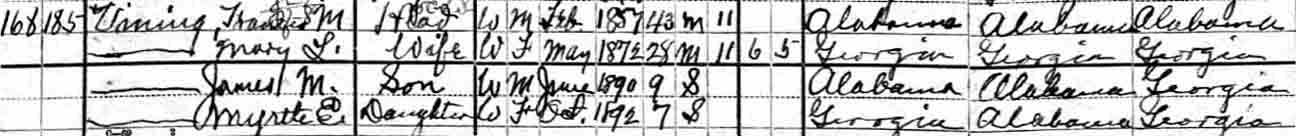 168 185 Vining, Francis M. Head W M Feb 1857 43 M 11 Alabama Alabama Alabama
Mary L. Wife W F May 1872 28 M 11 6 5 Georgia Georgia Georgia
James M. Son W M June 1890 9 S Alabama Alabama Georgia
Myrtle E. Daughter W F Oct. 1892 7 S Georgia Alabama Georgia